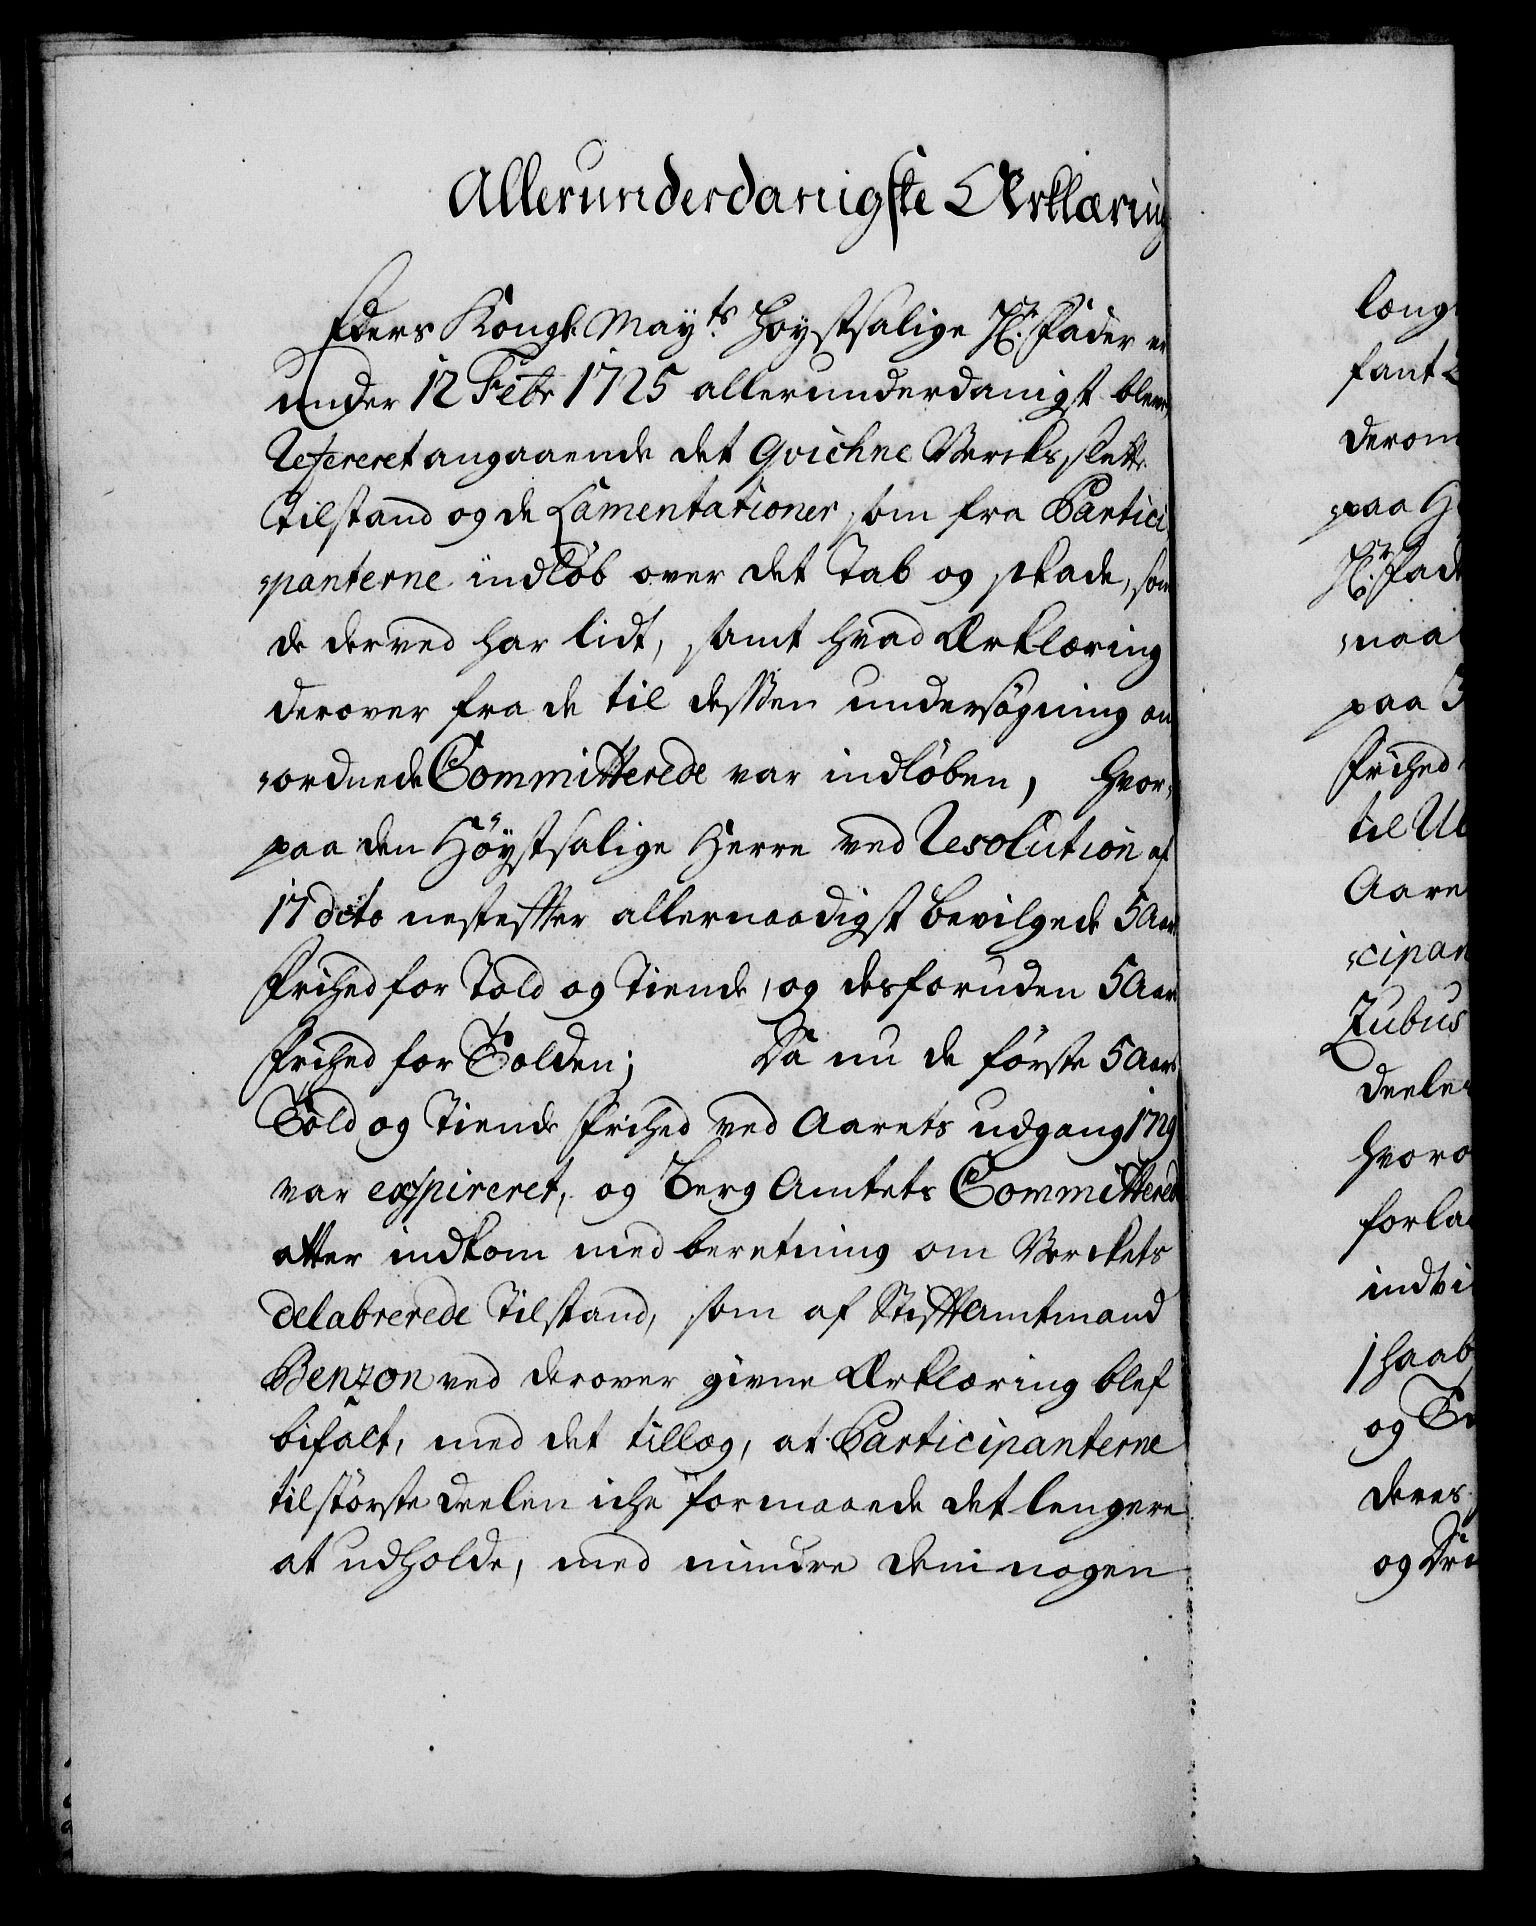 Allerunderdanigste Erklæring
Eders Kongl. Mayts Høystsalige Hr. Fader er
under 12 Febr 1725 allerunderdanigst blevet
Refereret angaaende det Qvichne Vercks slette
tilstand og de Lamentationer som fra Partici
panterne indløb over det Tab og skade, som
de derved har lidt, samt hvad Erklæring
derover fra de til dessen undersøgning an
ordnede Committerede var indløben, hvor
paa den Høystsalige Herre ved Resolution af
17 dito nestefter allernaadigst bevilgede 5 Aars
Frihed for Told og Tiende, og desforuden 5 Aars
Frihed for Tolden; Da nu de første 5 Aars
Told og Tiende Frihed ved Aarets udgang 1729
var expireret, og Berg Amtets Committerede
atter indkom med beretning om Verckets
delabrerede Tilstand, som af Stiftamtmand
Benzon ved derover givne Erklæring blef
bifalt, med det tillæg, at Participanterne
til største deelen iche formaaede det lengere
at udholde, med mindre dem nogen
læng
fant
derom
paa H
Hr. Fade
naa
paa
Frihed
til Ud
Aare
cipan
Zubus
deele
hvoro
forla
indvi
i haab
og
deres
og